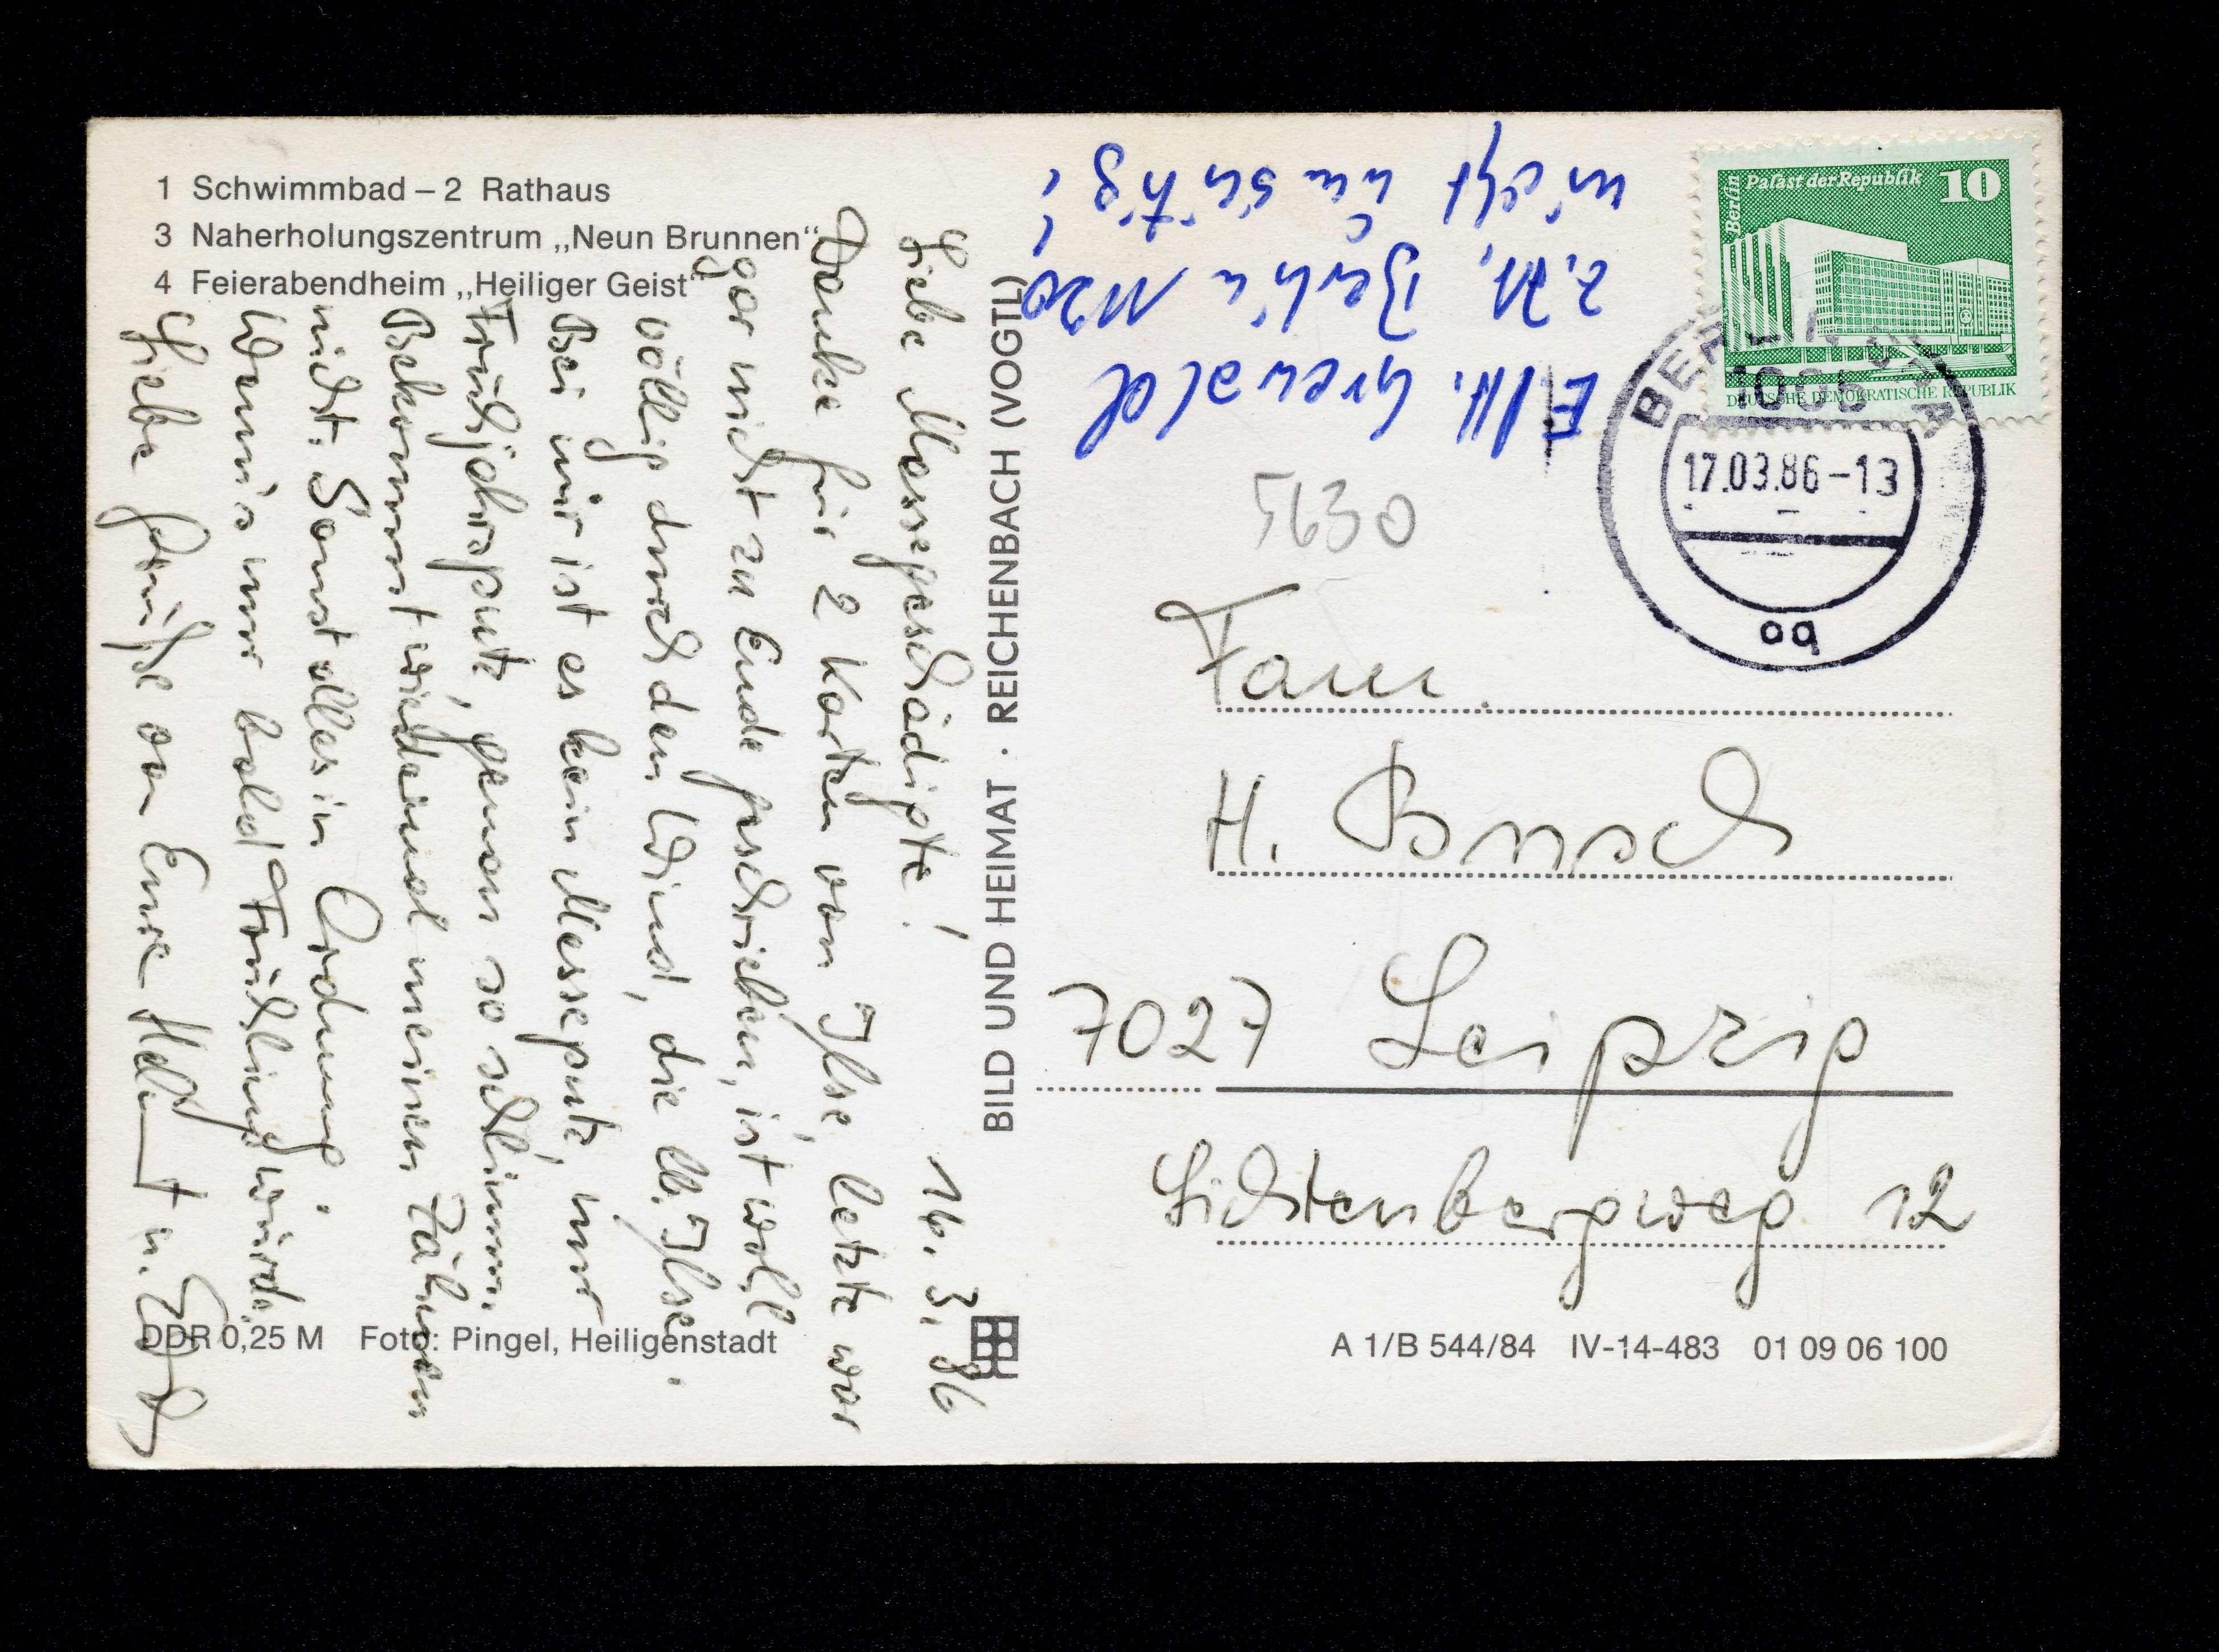 1 Schwimmbad – 2 Rathaus
3 Naherholungszentrum „Neun Brunnen“
4 Feierabendheim „Heiliger Geist“
16. 3. 86
Liebe Messegeschädigte!
Danke für 2 Karten von Ilse, letzte war
gar nicht zu Ende geschrieben, ist wohl
völlig durch den Wind, die lb. Ilse.
Bei mir ist es kein Messeputz, nur
Frühjahrsputz, genau so schlimm.
Bekommt wiedermal meinen Zähnen
nicht. Sonst alles in Ordnung.
Wenn's nur bald Frühling würde.
Liebe Grüße von Eure
DDR 0,25 M Foto: Pingel, Heiligenstadt
BILD UND HEIMAT · REICHENBACH (VOGTL)
E./H. Grewald
z.Zt. Berlin 1120
nicht
Berlin Palast der Republik 10
DEUTSCHE DEMOKRATISCHE REPUBLIK
BERLIN
1085
17.03.86-13
5630
Fam.
H. Bönsch
7027 Leipzig
Lichtenbergweg 12
A 1/B 544/84 IV-14-483 01 09 06 100